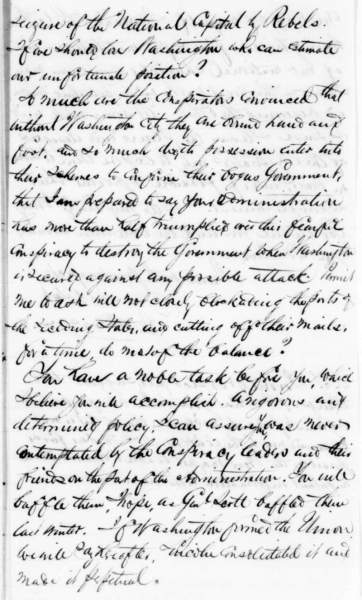 seizure of the National Capital by Rebels.
If we should lose Washington who can estimate
our unfortunate position?
So much are the Conspirators convinced that
without Washington City they are bound hand and
foot, and so much does its possession enter into
their schemes to inspire their bogus Government,
that I am prepared to say your Administration
has more than half triumphed over this fearful
Conspiracy to destroy the Government when Washington
is secured against any possible attack. Permit
me to ask will not closely blockading the ports of
the Seceding States, and cutting off their mails,
for a time, do most of the balance?
You have a noble task before you, which
I believe you will accomplish. A vigorous and
determined policy, I can assure you, was never
contemplated by the Conspiracy leaders and their
friends on the part of this Administration. You will
baffle them, I hope, as Genl Scott baffled them
last winter. If Washington formed the Union,
we will say hereafter, Lincoln Consolidated it and
made it perpetual.